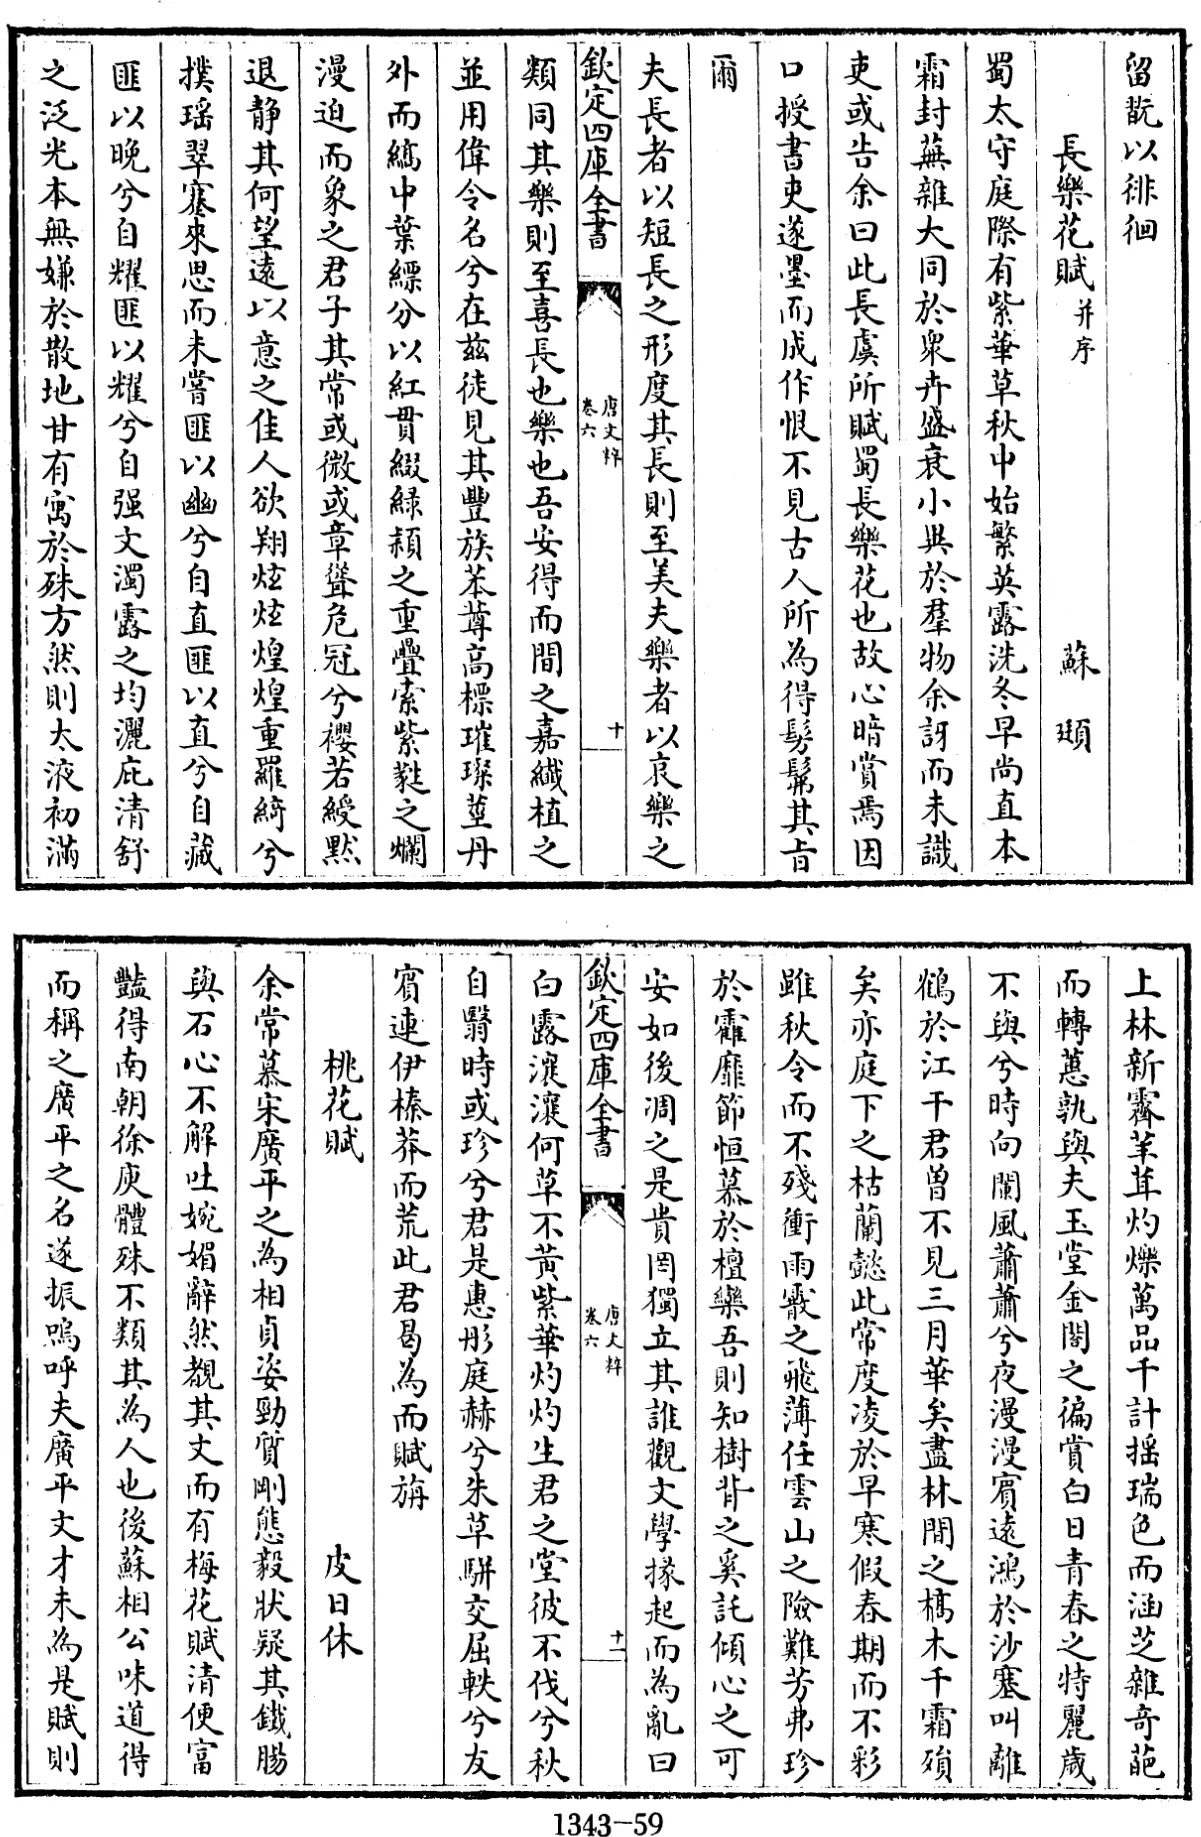 留翫以徘徊
長樂花賦 并序 蘇頲
蜀太守庭際有紫華草秋中始繁英露洗冬早尚直本
霜封蕪雜大同於衆卉盛衰小與於羣物余訝而未識
吏或告余曰此長虞所賦蜀長樂花也故心暗賞焉因
口授書吏遂墨而成作恨不見古人所為得髣髴其旨
爾
夫長者以短長之形度其長則至美夫樂者以哀樂之
欽定四庫全書 唐文粹 卷六 十
類同其樂則至喜長也樂也吾安得而間之嘉纎植之
並用偉令名兮在兹徒見其豐族苯䔿高標璀璨莖丹
外而縞中葉縹分以紅貫綴緑纇之重疊索紫蕤之爛
漫迫而象之君子其常或微或章聳危冠兮櫻若綬默
退静其何望遠以意之佳人欲翔炫炫煌煌重羅綺兮
撲瑶翠蹇來思而未嘗匪以幽兮自直匪以直兮自藏
匪以晚兮自耀匪以耀兮自强文濁露之均灑庇清舒
之泛光本無嫌於散地甘有寓於殊方然則太液初滿
上林新霽芊茸灼爍萬品千計揺瑞色而涵芝雜奇葩
而轉蕙孰與夫玉堂金閣之徧賞白日青春之特麗歲
不與兮時向闌風蕭蕭兮夜漫漫賓遠鴻於沙塞叫離
鶴於江干君曽不見三月華矣盡林間之槁木千霜殞
矣亦庭下之枯蘭懿此常度凌於早寒假春期而不彩
雖秋令而不殘衝雨霰之飛薄任雲山之險難芳弗珍
於靃靡節恒慕於檀欒吾則知樹背之奚託傾心之可
安如後凋之是貴罔獨立其誰觀文學掾起而為亂曰
欽定四庫全書 唐文粹 卷六 十一
白露瀼瀼何草不黄紫華灼灼生君之堂彼不伐兮秋
自翳時或珍兮君是惠彤庭赫兮朱草駢交屈軼兮友
賓連伊榛莽而荒此君曷為而賦旃
桃花賦 皮日休
余常慕宋廣平之為相貞姿勁質剛態毅狀疑其鐵腸
與石心不解吐婉媚辭然覩其文而有梅花賦清便富
豔得南朝徐庾體殊不類其為人也後蘇相公味道得
而稱之廣平之名遂振嗚呼夫廣平文才未為是賦則
1343-59